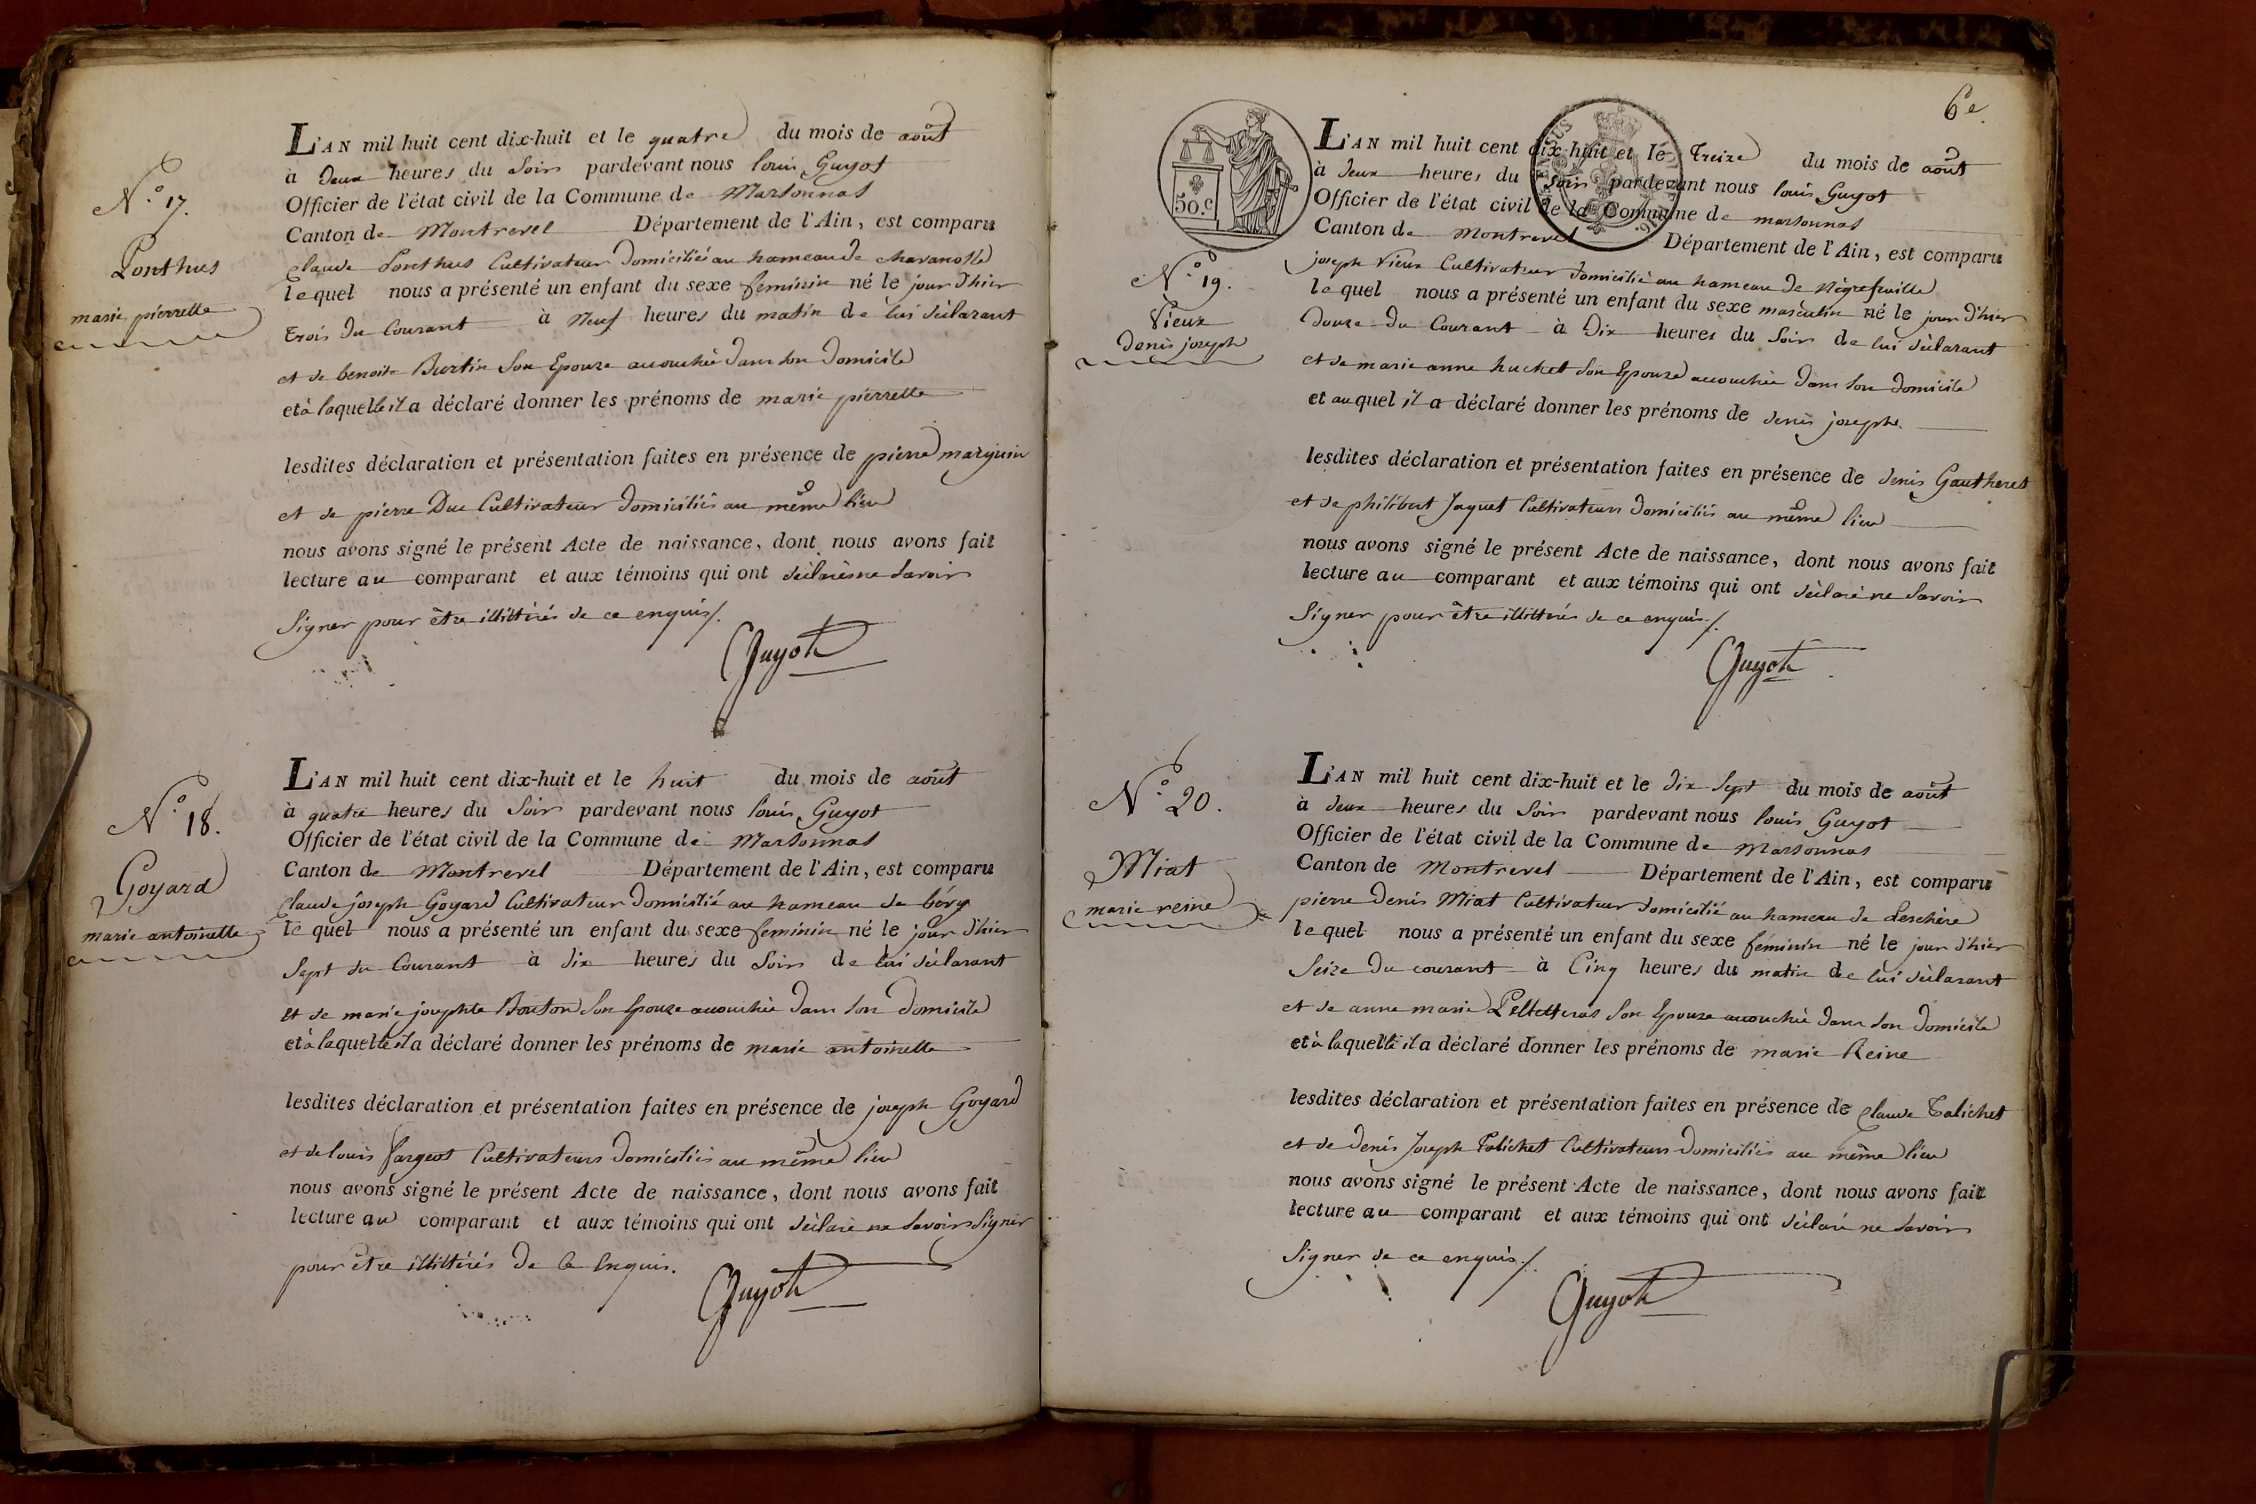 N.° 17.
Ponthus
marie pierrette
L'AN mil huit cent dix-huit et le quatre du mois de août
à deux heures du soir pardevant nous louis Guyot
Officier de l'état civil de la Commune de Marsonnas
Canton de Montrevel Département de l'Ain, est comparu
Claude Ponthus Cultivateur domicilié au hameau de
lequel nous a présenté un enfant du sexe féminin né le jour d'hier
trois du Courant à neuf heures du matin de lui déclarant
et de benoite Burtin son Epouse accouchée dans son domicile
et à laquelle il a déclaré donner les prénoms de marie pierrette
lesdites déclaration et présentation faites en présence de pierre marguin
et de pierre Duc Cultivateur domiciliés au même lieu
nous avons signé le présent Acte de naissance, dont nous avons fait
lecture au comparant et aux témoins qui ont déclarés ne savoir
signer pour être illittérés de ce enquis /.
Guyot
N.° 18.
Goyard
marie antoinette
L'AN mil huit cent dix-huit et le huit du mois de août
à quatre heures du soir pardevant nous louis Guyot
Officier de l'état civil de la Commune de Marsonnas
Canton de Montrevel Département de l'Ain, est comparu
Claude joseph Goyard Cultivateur domicilié au hameau de béry
le quel nous a présenté un enfant du sexe féminin né le jour d'hier
sept du Courant à dix heures du soir de lui déclarant
et de marie josephte Bouton son Epouse accouchée dans son domicile
et à laquelle il a déclaré donner les prénoms de marie antoinette
lesdites déclaration et présentation faites en présence de joseph Goyard
et de louis fargeot Cultivateurs domiciliés au même lieu
nous avons signé le présent Acte de naissance, dont nous avons fait
lecture au comparant et aux témoins qui ont déclaré ne savoir signer
pour être illittérés de ce enquis.
Guyot
6e.
50.c
N.° 19.
Vieux
denis joseph
L'AN mil huit cent dix-huit et le treize du mois de août
à deux heures du soir pardevant nous louis Guyot
Officier de l'état civil de la Commune de marsonnas
Canton de Montrevel Département de l'Ain, est comparu
joseph Vieux Cultivateur domicilié au hameau de Nègrefeuille
lequel nous a présenté un enfant du sexe masculin né le jour d'hier
douze du Courant à Dix heures du soir de lui déclarant
et de marie anne huchet son Epouse accouchée dans son domicile
et auquel il a déclaré donner les prénoms de denis joseph.
lesdites déclaration et présentation faites en présence de denis Gautheret
et de philibert Jaquet Cultivateurs domiciliés au même lieu
nous avons signé le présent Acte de naissance, dont nous avons fait
lecture au comparant et aux témoins qui ont déclaré ne savoir
signer pour être illittérés de ce enquis /.
Guyot
N.° 20.
Miat
marie reine
L'AN mil huit cent dix-huit et le dix sept du mois de août
à deux heures du soir pardevant nous louis Guyot
Officier de l'état civil de la Commune de Marsonnas
Canton de Montrevel Département de l'Ain, est comparu
pierre Denis Miat Cultivateur domicilié au hameau de Leschère
lequel nous a présenté un enfant du sexe féminin né le jour d'hier
seize du courant à Cinq heures du matin de lui déclarant
et de anne marie son Epouse accouchée dans son domicile
et à laquelle il a déclaré donner les prénoms de marie Reine
lesdites déclaration et présentation faites en présence de Claude Talichet
et de Denis Joseph Talichet Cultivateurs domiciliés au même lieu
nous avons signé le présent Acte de naissance, dont nous avons fait
lecture au comparant et aux témoins qui ont déclaré ne savoir
signer de ce enquis /.
Guyot